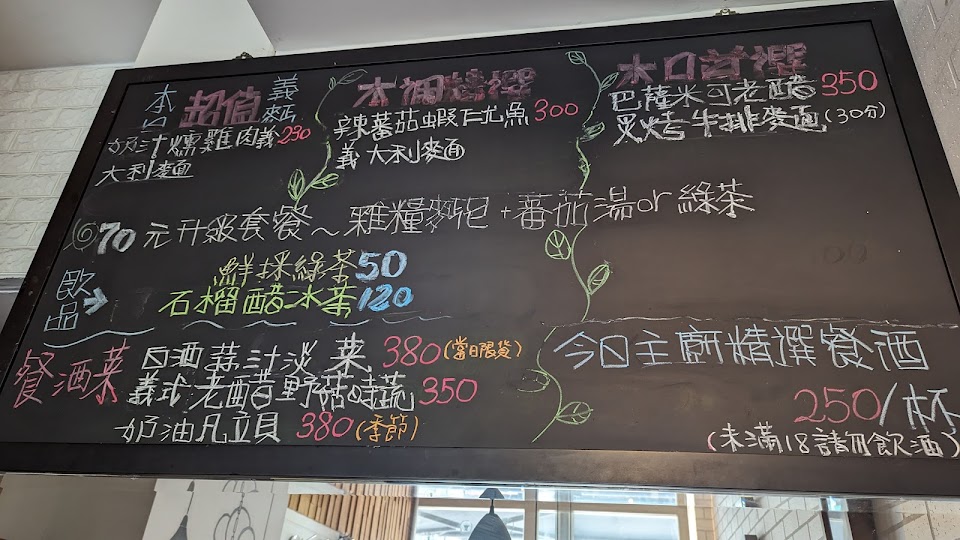 本日 超值 義麵
奶汁燻雞肉義 230
大利麵
本週精選
辣蕃茄蝦仁尤魚 300
義大利麵
本日首選
巴薩米可老醋 350
炙烤牛排麥面 (30分)
70元升級套餐～雜糧麵包+蕃茄湯or綠茶
飲品→
鮮採綠茶50
石榴醋冰茶120
餐酒菜
白酒蒜汁淡菜 380 (當日限貨)
義式老醋野菇時蔬 350
奶油凡立貝 380 (季節)
今日主廚精選餐酒
250/杯
(未滿18請勿飲酒)